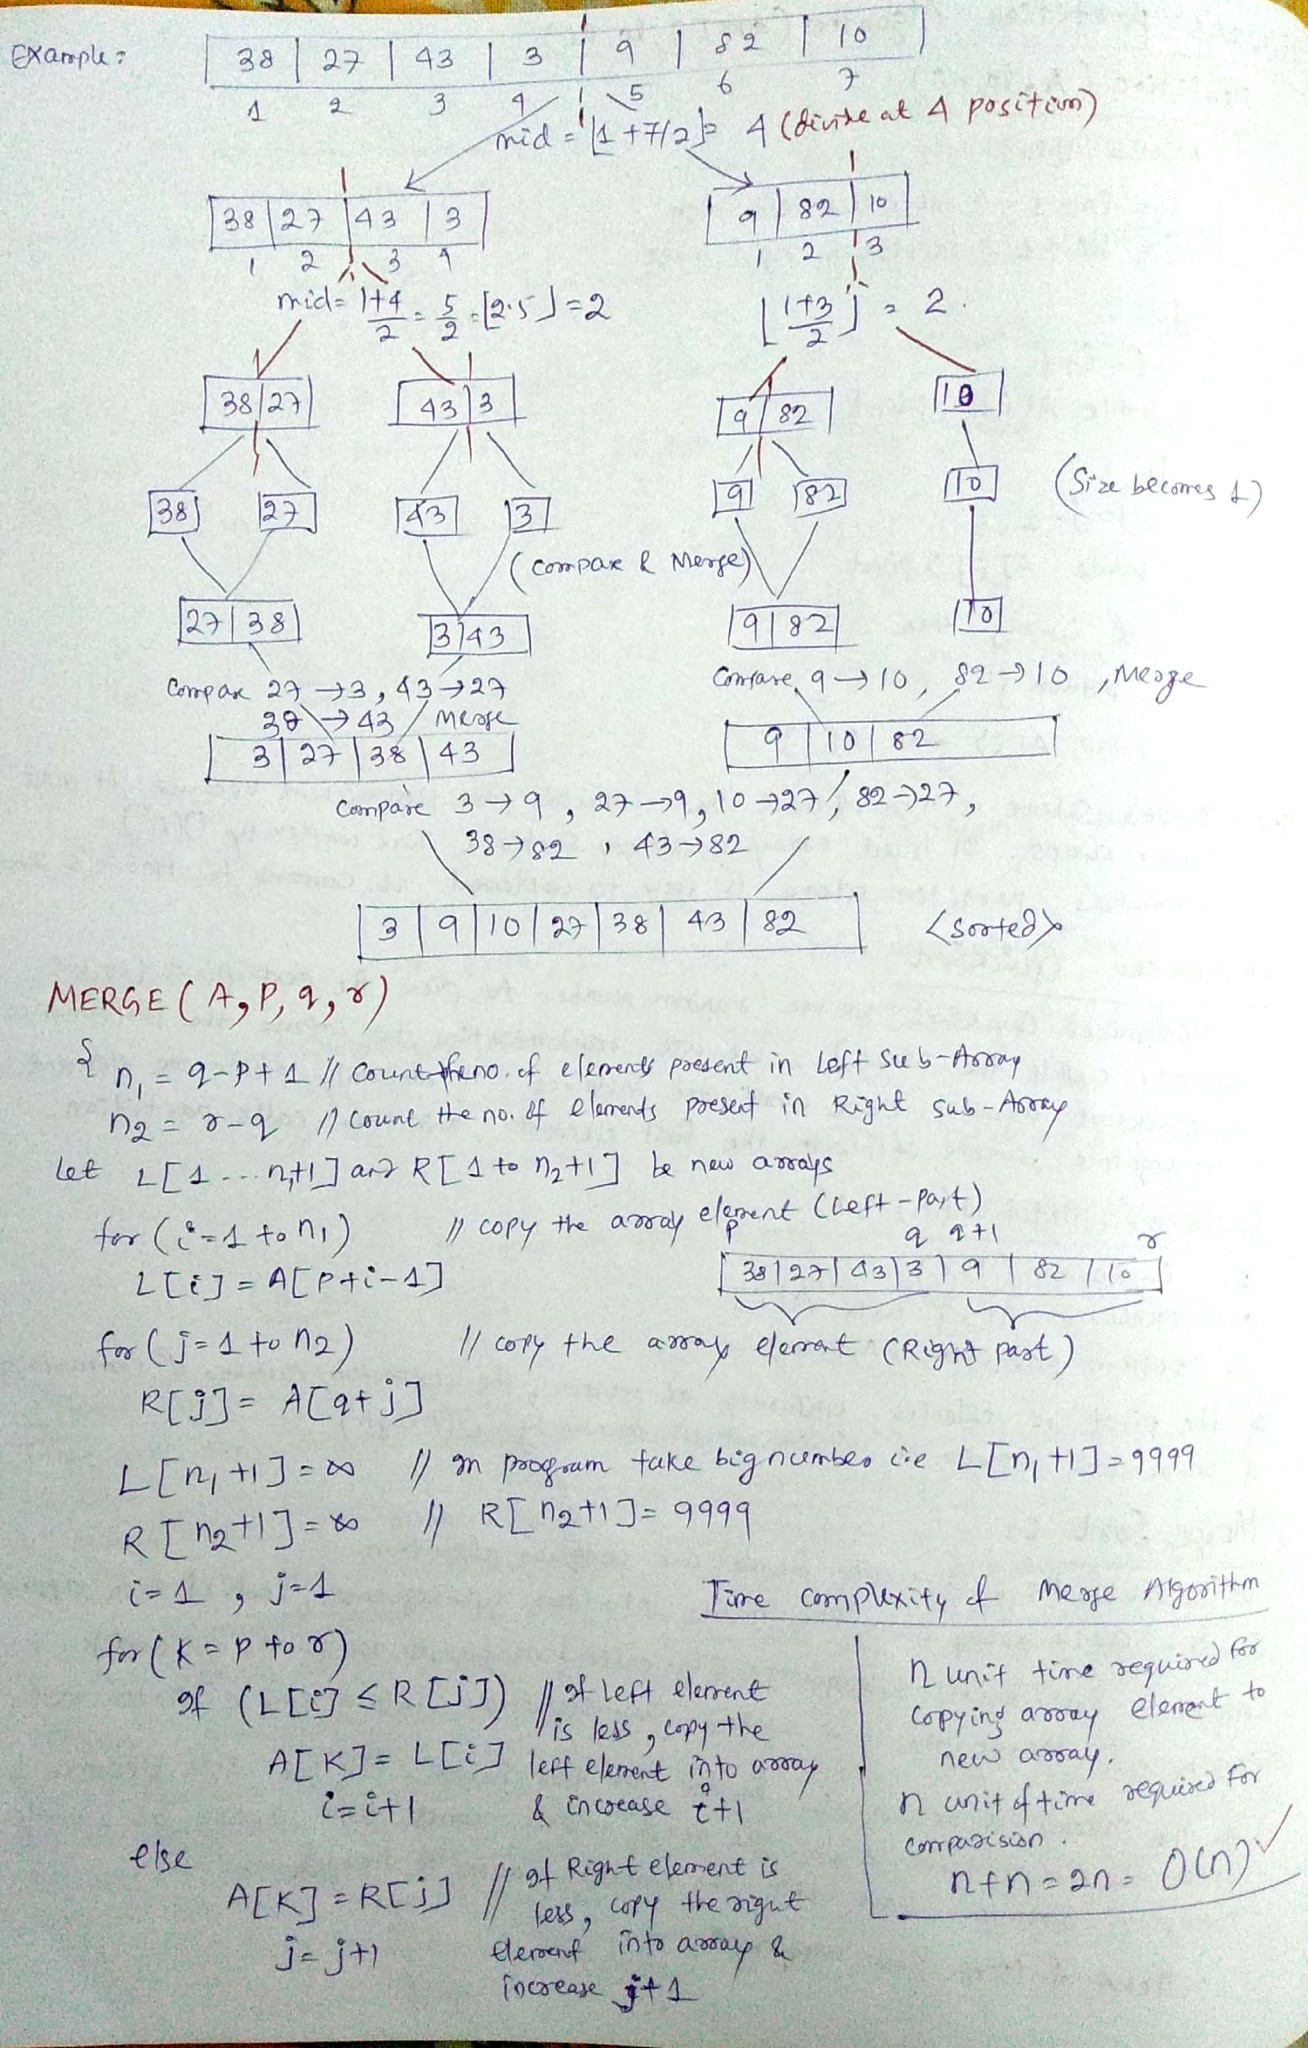 Example:
38 | 27 | 43 | 3 | 9 | 82 | 10
1 2 3 4 5 6 7
mid = ⌊1+7/2⌋= 4 (divide at 4 position)
38 | 27 | 43 | 3
9 | 82 | 10
1 2 3 4
1 2 3
mid= 1+4/2 = 5/2 = ⌊2.5⌋ = 2
⌊1+3/2⌋ = 2.
38 | 27
43 | 3
9 | 82
10
38
27
43
3
9
82
10
(Size becomes 1)
(compare & Merge)
27 | 38
3 | 43
9 | 82
10
Compare 27 → 3, 43 → 27
38 → 43 Merge
Compare, 9 → 10, 82 → 10, Merge
3 | 27 | 38 | 43
9 | 10 | 82
Compare 3 → 9, 27 → 9, 10 → 27, 82 → 27,
38 → 82, 43 → 82
3 | 9 | 10 | 27 | 38 | 43 | 82
<sorted>
MERGE (A, P, q, r)
{
n₁ = q-p+1 // Count the no. of elements present in Left Sub-Array
n₂ = r-q // Count the no. of elements present in Right Sub-Array
Let L[1 ... n₁+1] and R[1 to n₂+1] be new arrays
for (i=1 to n₁) // copy the array element (Left-Part)
L[i] = A[p+i-1]
p q q+1 r
38 | 27 | 43 | 3 | 9 | 82 | 10
for (j=1 to n₂) // copy the array element (Right part)
R[j] = A[q+j]
L[n₁+1] = ∞ // In program take big number i.e L[n₁+1] = 9999
R[n₂+1] = ∞ // R[n₂+1] = 9999
i=1, j=1
for (K = P to r)
If (L[i] ≤ R[j]) // If left element
is less, copy the
A[K] = L[i] left element into array
i=i+1 & increase i+1
else
A[K] = R[j] // If Right element is
less, copy the right
j=j+1 element into array &
increase j+1
Time complexity of Merge Algorithm
n unit time required for
copying array element to
new array.
n unit of time required for
comparision.
n+n = 2n = O(n)